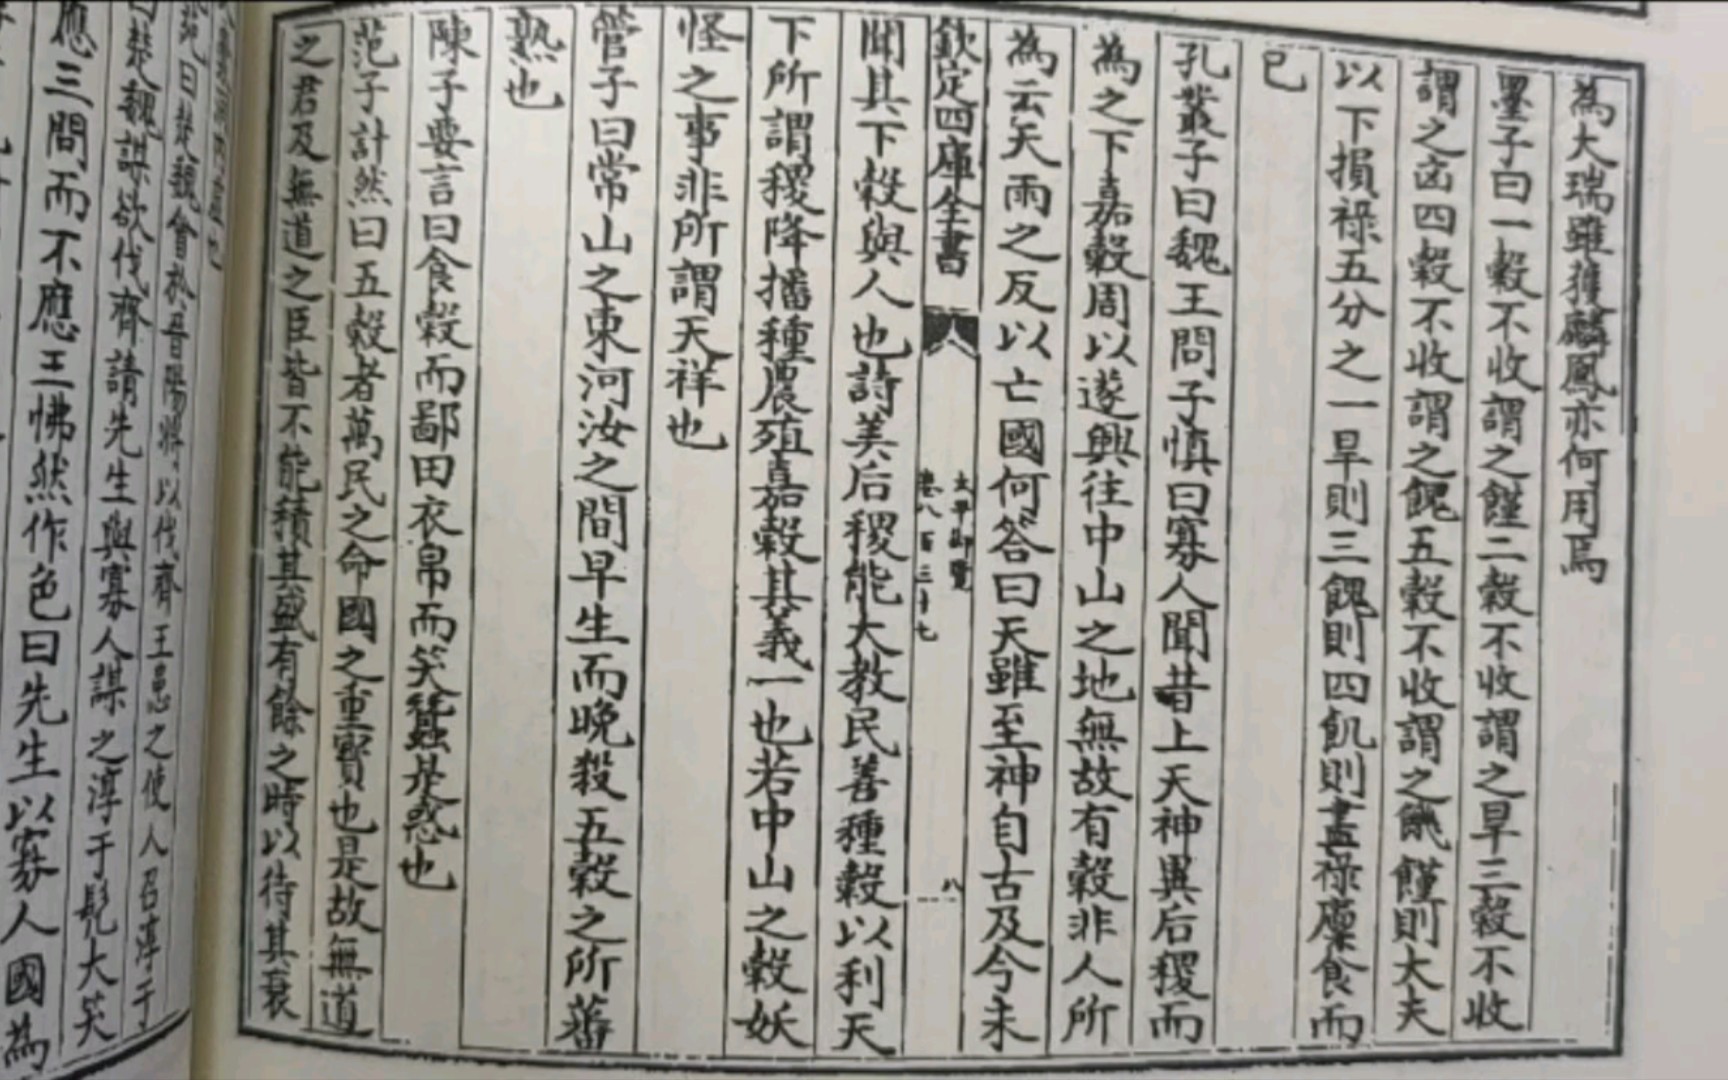 為大瑞雖獲麟鳳亦何用焉
墨子曰一穀不收謂之饉二穀不收謂之旱三穀不收
謂之凶四穀不收謂之餽五穀不收謂之饑饉則大夫
以下損祿五分之一旱則三餽則四飢則盡祿廩食而
已
孔叢子曰魏王問子慎曰寡人聞昔上天神異后稷而
為之下嘉穀周以遂興往中山之地無故有穀非人所
為云天雨之反以亡國何答曰天雖至神自古及今未
欽定四庫全書
太平御覽
卷八百三十七
八
聞其下穀與人也詩美后稷能大教民善種穀以利天
下所謂稷降播種農殖嘉穀其義一也若中山之穀妖
怪之事非所謂天祥也
管子曰常山之東河汝之間早生而晚殺五穀之所蕃
熟也
陳子要言曰食穀而鄙田衣帛而笑蠶是惑也
范子計然曰五穀者萬民之命國之重寳也是故無道
之君及無道之臣皆不能積其盛有餘之時以待其衰
曰楚魏會於晉陽將以伐齊王患之使人召淳于
曰楚魏謀欲伐齊請先生與寡人謀之淳于髡大笑
應三問而不應王怫然作色曰先生以寡人國為